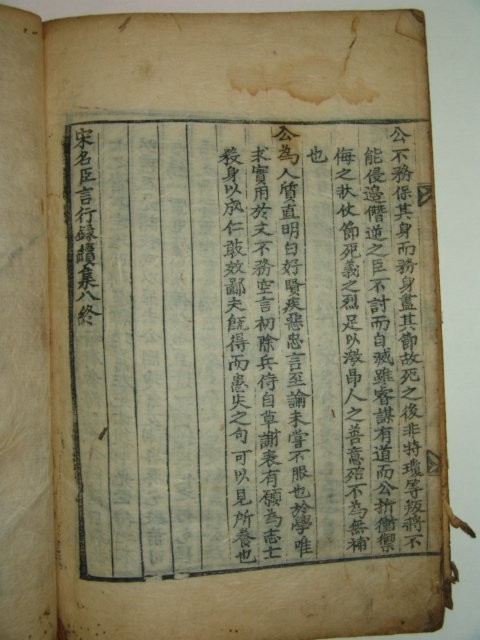 公不務保其身而務身盡其節故死之後非特瓊等叛將不
能侵邉僭逆之臣不討而自滅雖睿謀有道而公折衝禦
侮之狀仗節死義之烈足以激昂人之善意殆不為無補
也
公為人質直明白好賢疾惡忠言至論未嘗不服也於學唯
求實用於文不務空言初除兵侍自草謝表有願為志士
殺身以成仁敢效鄙夫旣得而患失之句可以見所養也
宋名臣言行録續集八終